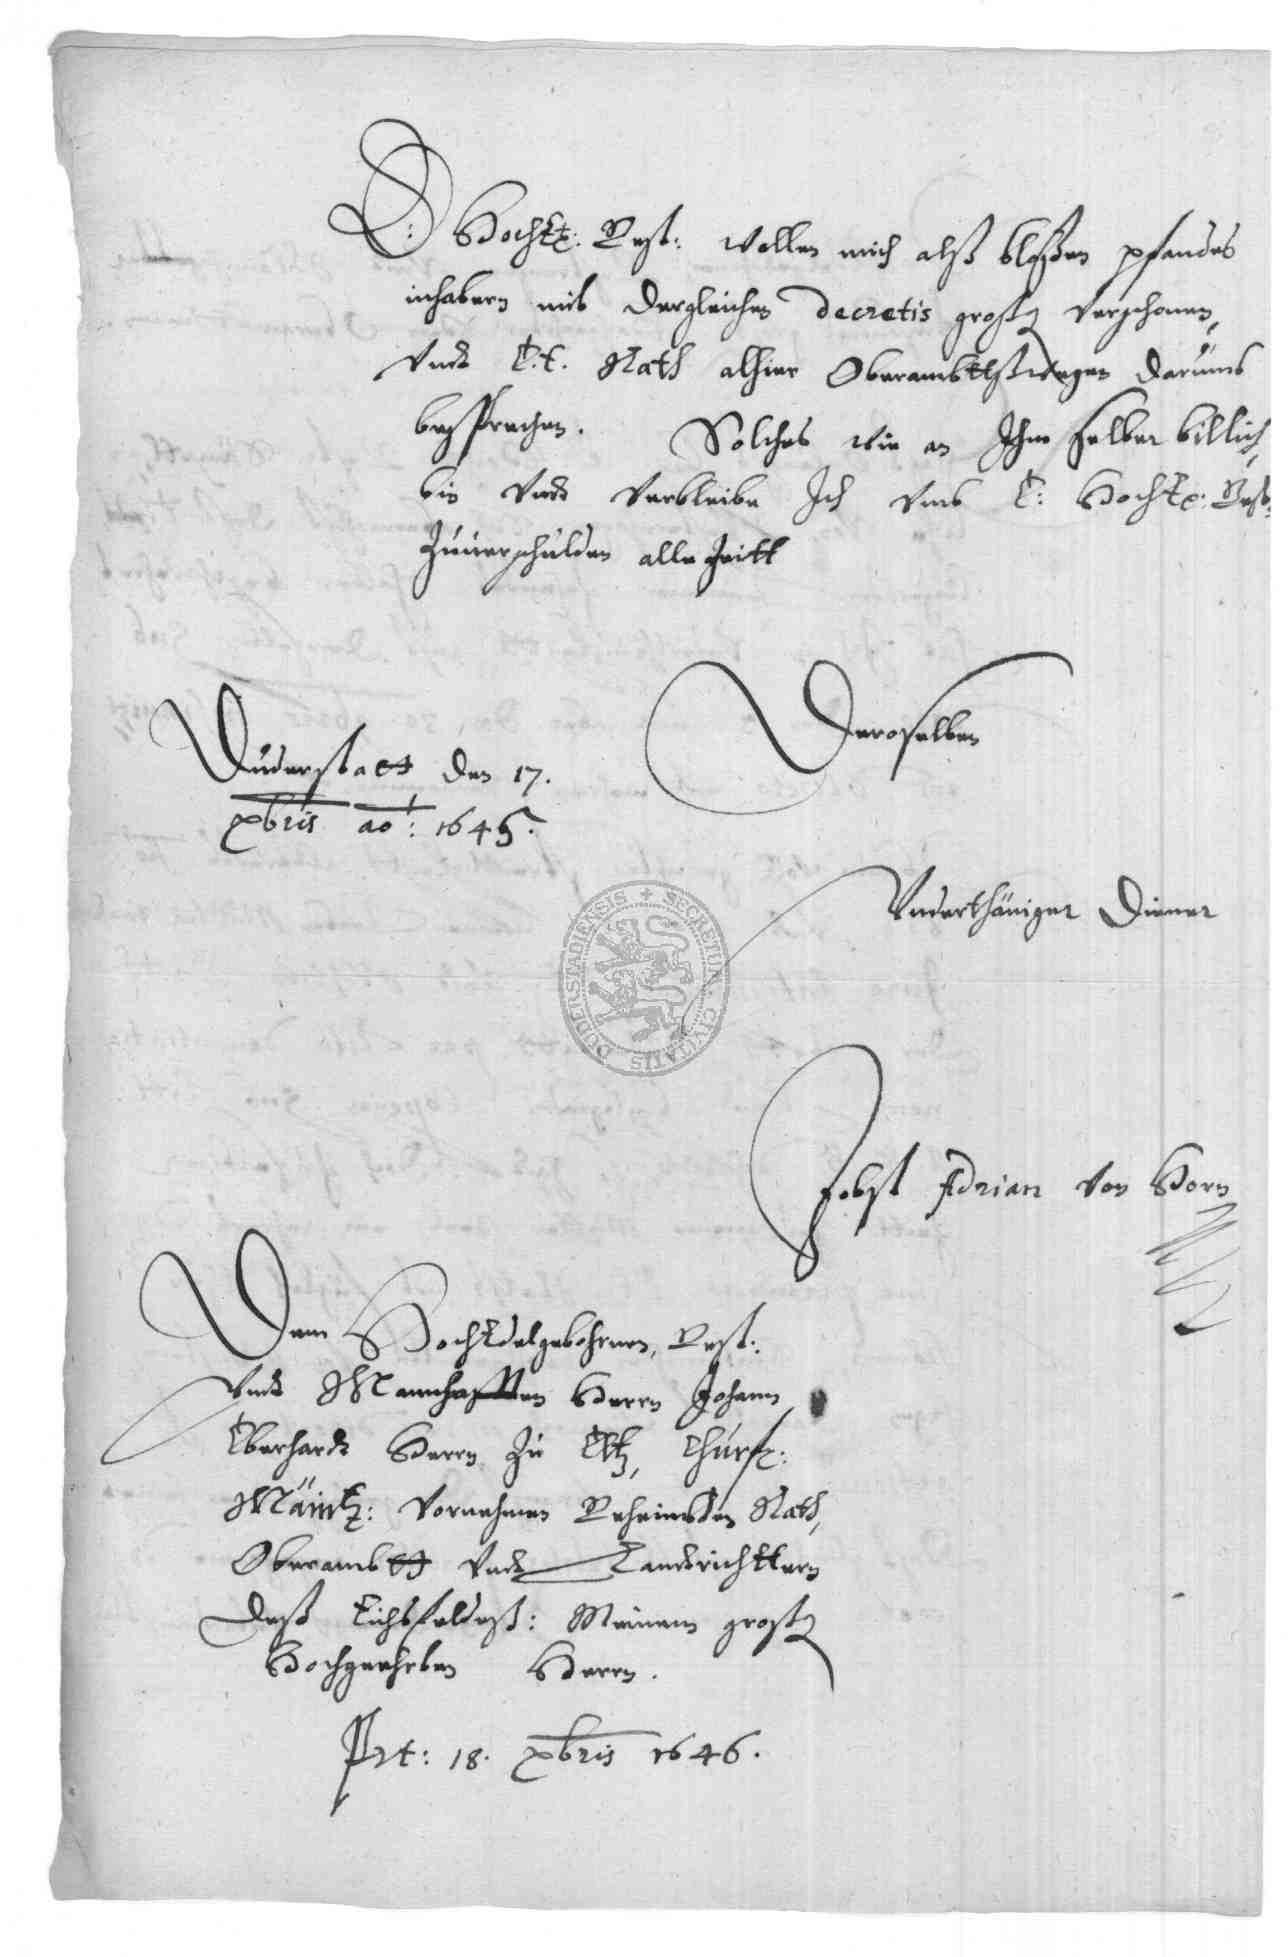 E: HochEd: Gest: wollen mich alß bloßen pfandes
inhabern mit dergleichen decretis großg verschonen,
Vndt E. E. Rath alhier Oberambttswegen darumb
besprechen. Solches wie an Ihm selber billich,
bin Vndt Verbleibe Ich Vmb E: HochEd: Gest:
Zuuerschulden alle Zeitt
Deroselben
Duderstadt den 17.
xbris ao: 1646.
Vnderthäniger Diener
Jobst Adrian Von Horn
Dem HochEdelgebohrnen, Gest:
Vndt Mannhafften Herrn Johann
Eberhardt Herrn Zu Eltz, Churf:
Mäintz: Vornehmen Geheimbden Rath,
Oberambtt Vndt Landtrichttern
deß Eichsfeldeß: Meinem großg
Hochgeehrten Herrn.
Prt: 18. xbris 1646.
SECRETUM CIVITATIS DUDERSTADIENSIS